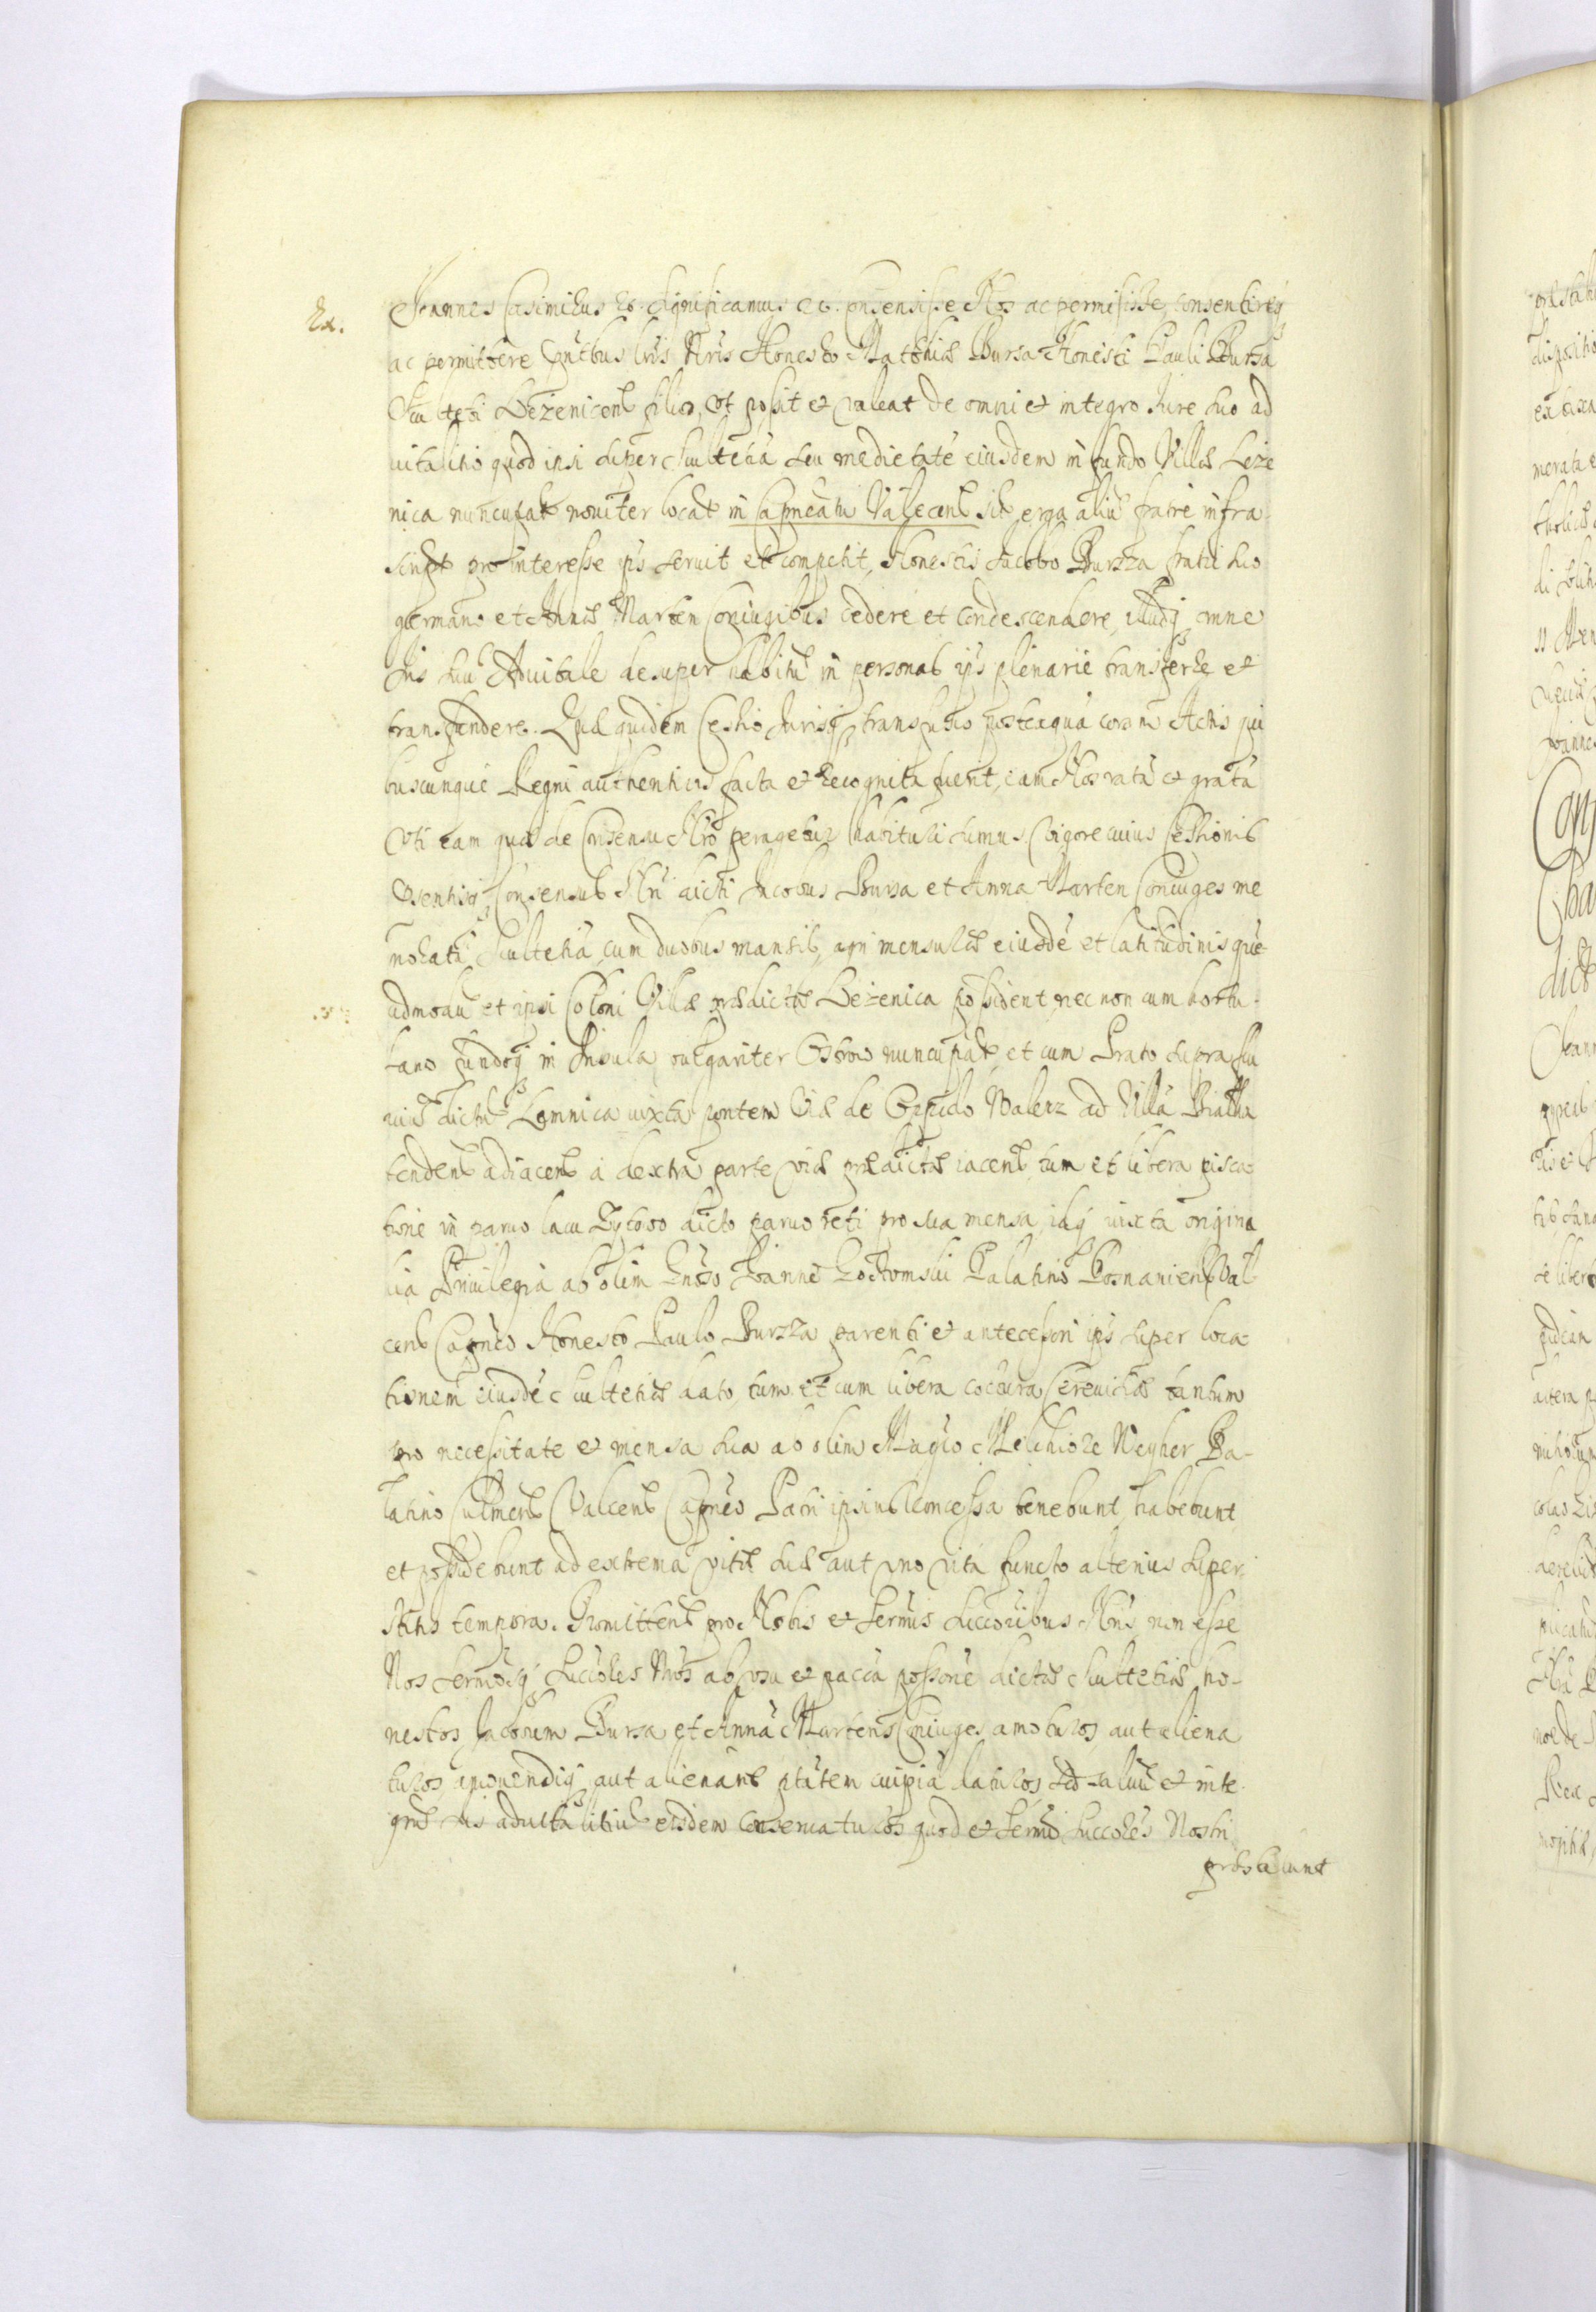 Ex.
Joannes Casimirus etc. Significamus etc. Consensisse Nos ac permisisse, consentireq
ac permittere pntibus lris Nris Honesto Matthiæ Bursa Honesti Pauli Bursa
Sculteti Leżenicens filio, Vt possit et valeat de omni et integro Jure suo ad
vitalitio quod ipsi super scultetia seu medietate eiusdem in fundo Villæ Leże
nica nuncupat noviter locat in Capneatu Valecens sit erga aliu fratre infra
script pro interesse ips seruit et competit, Honestis Jacobo Burzza fratri suo
germano et Annæ Marten Coniugibus cedere et condescendere, illudq omne
Jus suu Aduitale desuper habitu in personas ips plenarie transferre et
transfundere. Quæ quidem Cessio Jurisq transfusio posteaqua coram Actis qui
buscunque Regni authenticis facta et recognita fuerit, eam Nos rata et grata
Vti eam quæ de Consensu Nro peragetur habituri sumus. Vigore cuius Cessionis
Consensus Nri dicti Jacobus Bursa et Anna Marten Coniuges me
morati Scultetia cum duobus mansis, agri mensuræ eiusde et latitudinis que
admodu et ipsi Coloni Villæ prædictæ Leżenica possident, nec non cum hortu
lano fundoq in Insula vulgariter Ostrow nuncupat, et cum Prato supra flu
viu dictu Lomnica iuxta pontem Viæ de Oppido Walcz ad Villa Bialla
tendens adiacens a dextra parte viæ prædictæ iacens, tum et libera pisca
tione in paruo lacu dicto paruo reti pro sua mensa, idq iuxta origina
lia Priuilegia ab olim Gnoso Joanne Gostomski Palatino Posnaniens Val
cens Capneo Honesto Paulo Burzza parenti et antecessori ips super loca
tionem eiusde scultetiæ dato, tum et cum libera coctura Cereuisiæ tantum
pro necessitate et mensa sua ab olim Magco Melchiore Weyher Pa-
latino Culmens Valcens Capneo Patri ipsius concessa tenebunt, habebunt
et possidebunt ad extrema vitæ suæ aut vno vita functo alterius super
stitis tempora. Promittens pro Nobis et Sermis Succoribus Nris non esse
Nos Sermosq Succores Nros ab vsu et pacca possone dictæ Scultetiæ ho-
nestos Jacobum Bursa et Anna Martens Coniuges amoturos, aut aliena
turos, amouendiq aut alienand ptatem cuipia daturos, sed saluu et inte
gru Jus aduitalitiu eisdem conseruaturos, quod et Sermi Succores Nostri
præstabunt